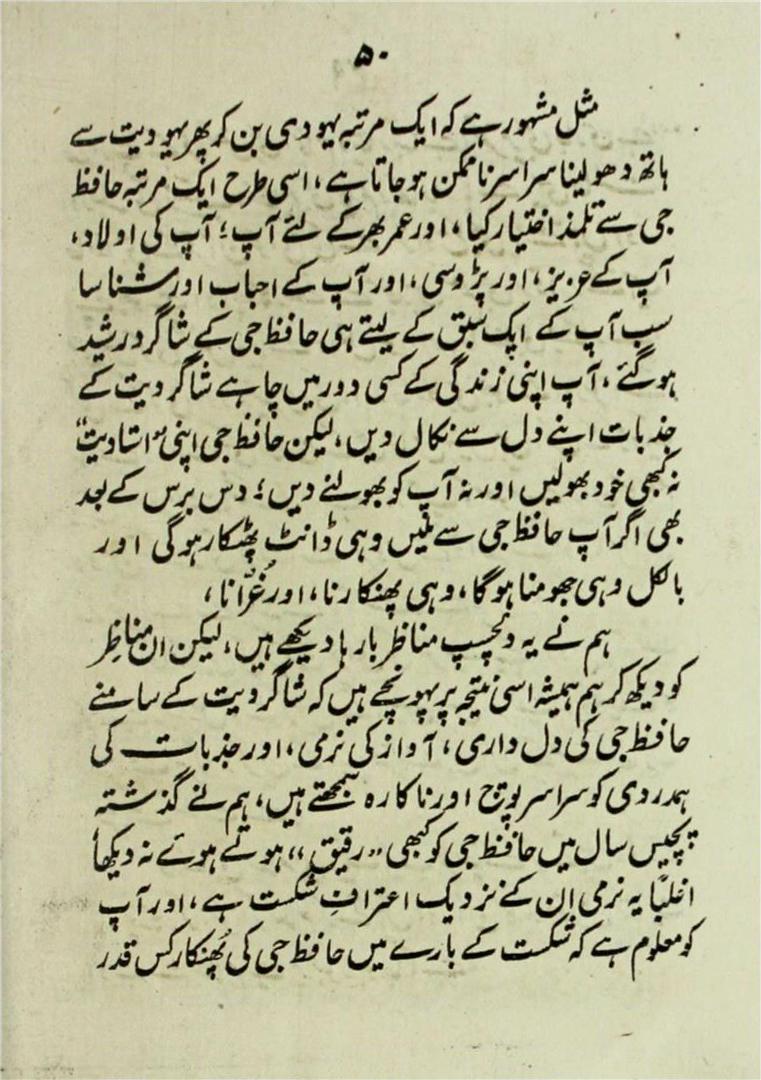 ۵۰
مثل مشہور ہے کہ ایک مرتبہ یہودی بن کر پھر یہودیت سے
ہاتھ دھو لینا سراسر ناممکن ہو جاتا ہے، اسی طرح ایک مرتبہ حافظ
جی سے تلمذ اختیار کیا، اور عمر بھر کے لئے آپ؛ آپ کی اولاد،
آپ کے عزیز، اور پڑوسی، اور آپ کے احباب اور شناسا
سب آپ کے ایک سبق کے لیتے ہی حافظ جی کے شاگرد رشید
ہو گئے، آپ اپنی زندگی کے کسی دور میں چاہے شاگردیت کے
جذبات اپنے دل سے نکال دیں، لیکن حافظ جی اپنی "استادیت"
نہ کبھی خود بھولیں اور نہ آپ کو بھولنے دیں؛ دس برس کے بعد
بھی اگر آپ حافظ جی سے ملیں وہی ڈانٹ پھٹکار ہوگی اور
بالکل وہی جھومنا ہوگا، وہی پھنکارنا، اور غُرّانا،
ہم نے یہ دلچسپ مناظر بارہا دیکھے ہیں، لیکن ان مناظِر
کو دیکھ کر ہم ہمیشہ اسی نتیجہ پر پہونچے ہیں کہ شاگردیت کے سامنے
حافظ جی کی دل داری، آواز کی نرمی، اور جذبات کی
ہمدردی کو سراسر پوچ اور ناکارہ سمجھتے ہیں، ہم نے گذشتہ
پچیس سال میں حافظ جی کو کبھی "رقیق" ہوتے ہوئے نہ دیکھا
اغلباً یہ نرمی اِن کے نزدیک اعترافِ شکست ہے، اور آپ
کو معلوم ہے کہ شکست کے بارے میں حافظ جی کی پُھنکار کس قدر